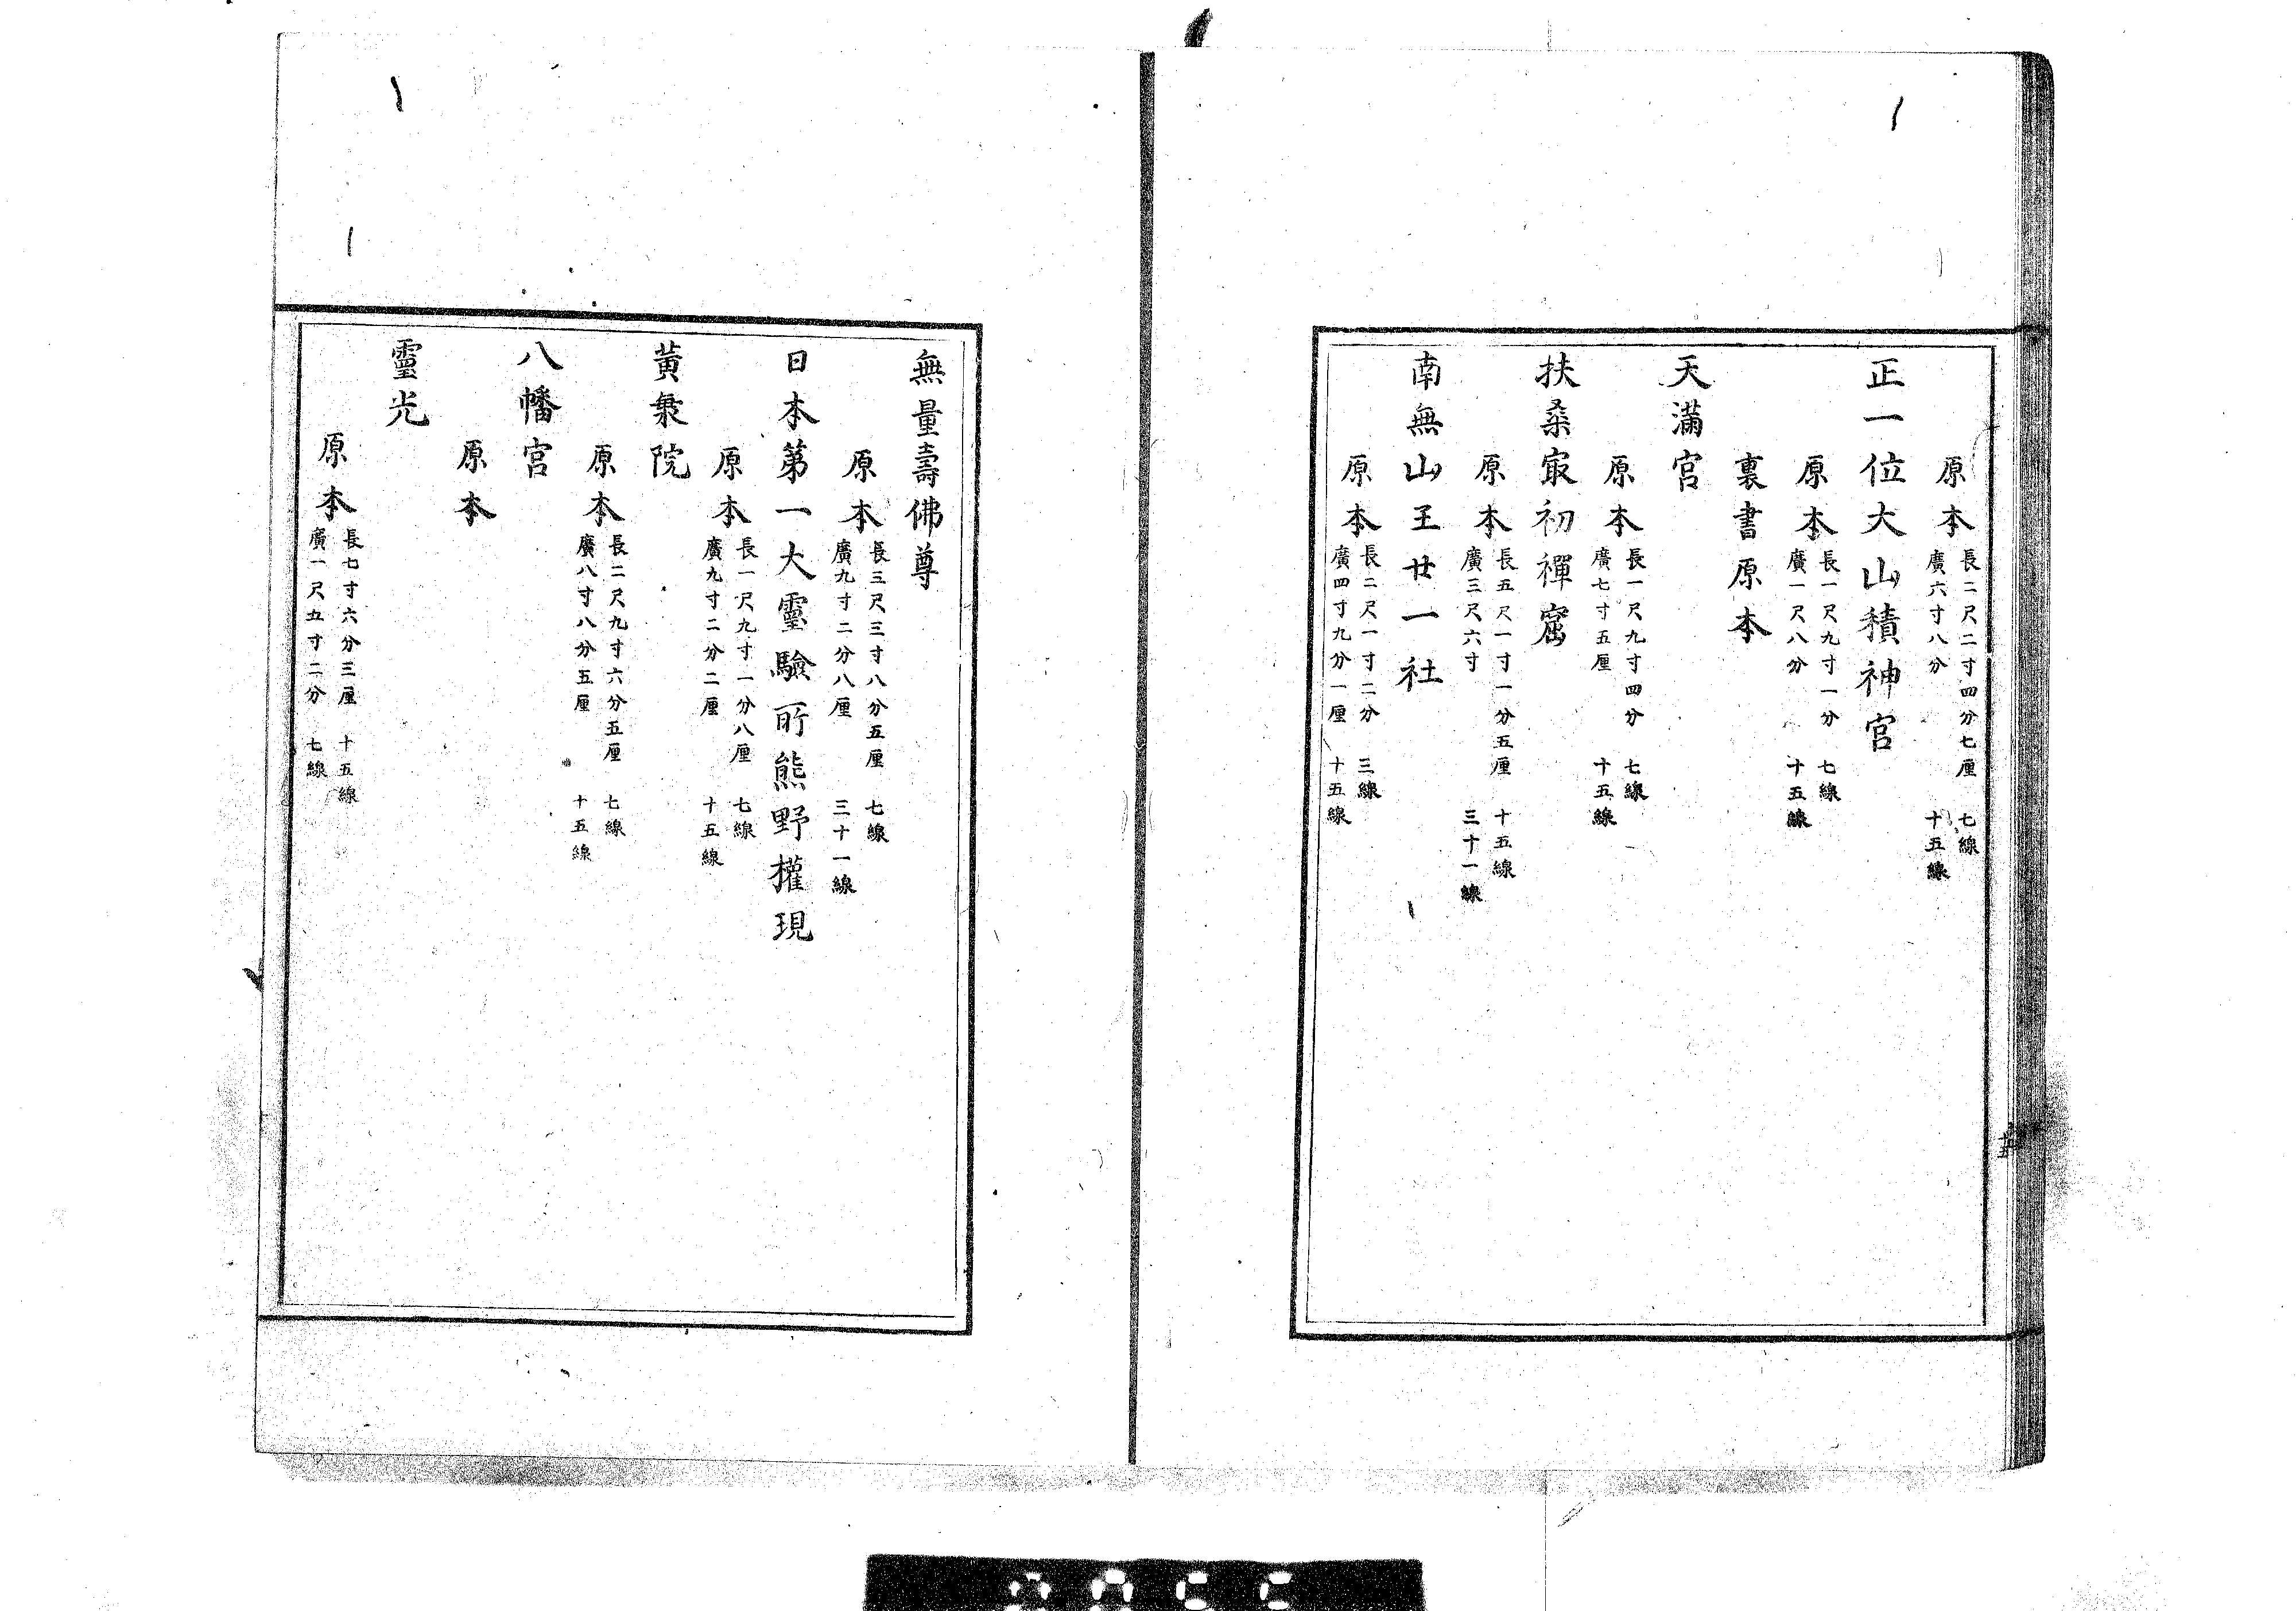 原本 長二尺二寸四分七厘 七線
廣六寸八分 十五線
正一位大山積神宮
原本 長一尺九寸一分 七線
廣一尺八分 十五線
裏書原本
天滿宮
原本 長一尺九寸四分 七線
廣七寸五厘 十五線
扶桑冣初禪窟
原本 長五尺一寸一分五厘 十五線
廣三尺六寸 三十一線
南無山王廿一社
原本 長二尺一寸二分 三線
廣四寸九分一厘 十五線
無量壽佛尊
原本 長三尺三寸八分五厘 七線
廣九寸二分八厘 三十一線
日本第一大靈驗所熊野權現
原本 長一尺九寸一分八厘 七線
廣九寸二分二厘 十五線
黃褩院
原本 長二尺九寸六分五厘 七線
廣八寸八分五厘 十五線
八幡宮
原本
靈光
原本 長七寸六分三厘 十五線
廣一尺五寸二分 七線